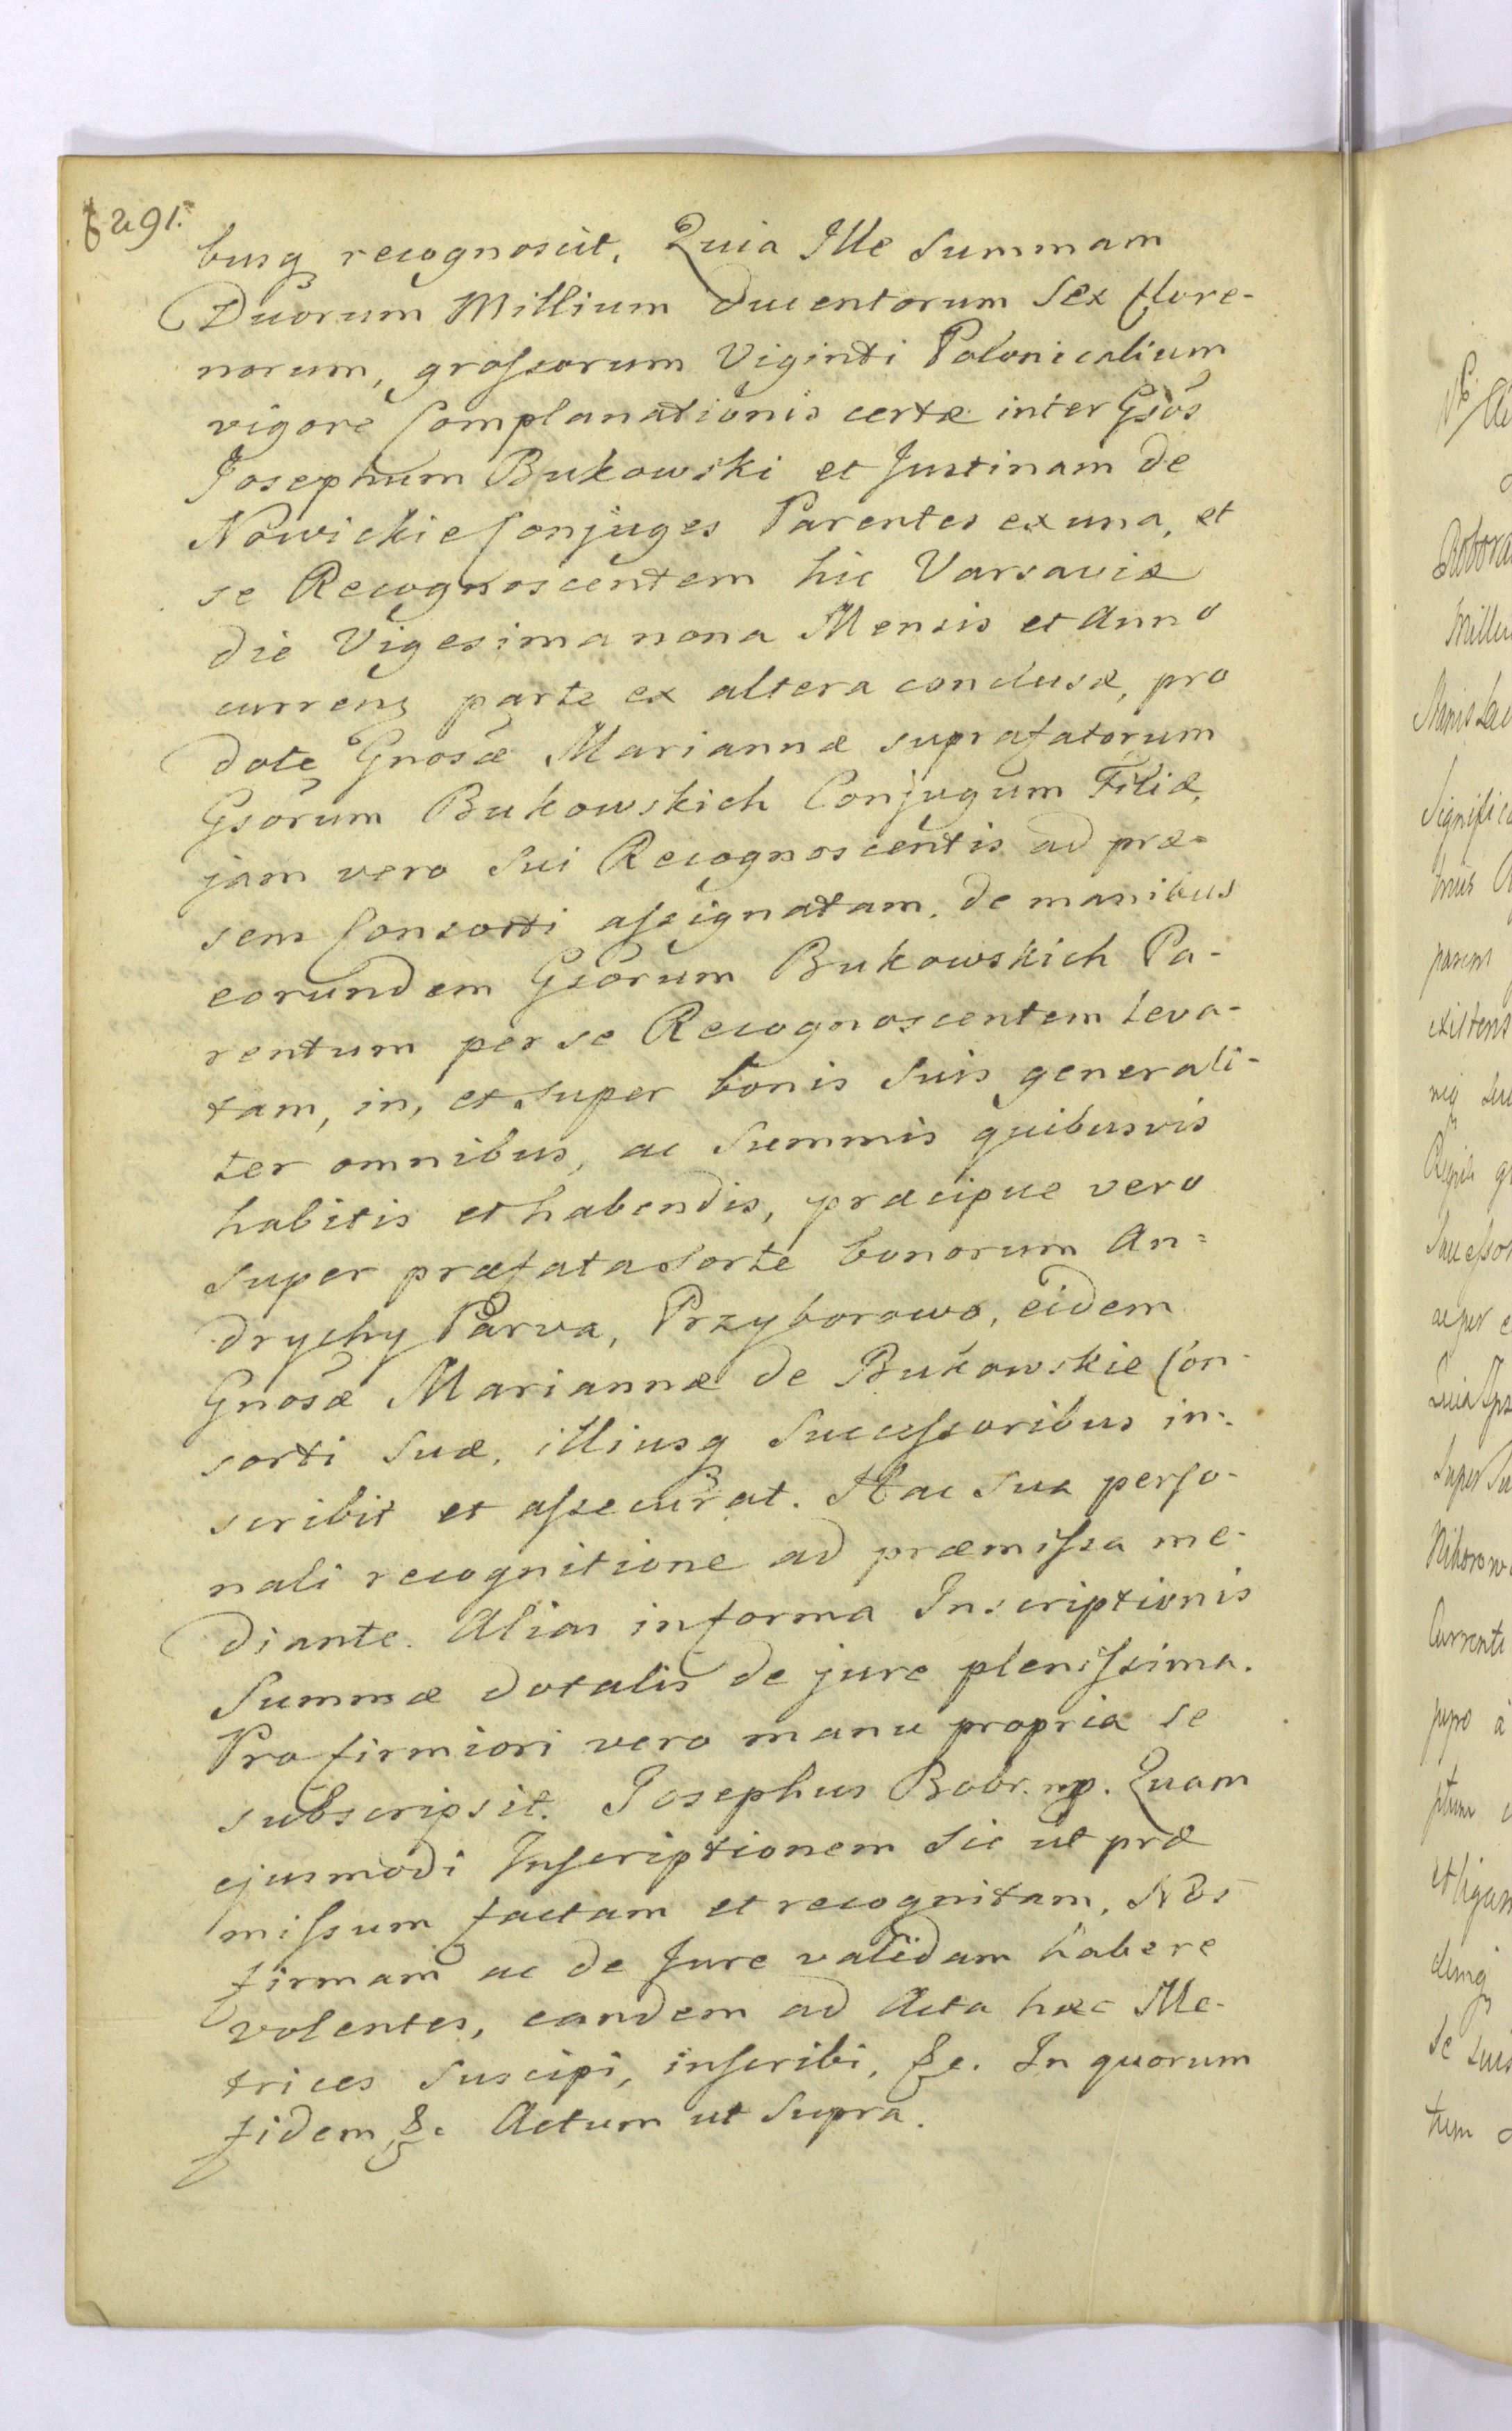 291.
busq recognoscit. Quia Ille Summam
Duorum Millium Ducentorum Sex flore-
norum, grossorum Viginti Polonicalium
vigore Complanationis certæ inter Gsos
Josephum Bukowski et Justinam de
Nowickie Conjuges Parentes ex una, et
se Recognoscentem hic Varsaviæ
die Vigesima nona Mensis et Anno
curren parte ex altera conclusæ, pro
dote Gnosæ Mariannæ suprafatorum
Gsorum Bukowskich Conjugum Filiæ,
jam vero Sui Recognoscentis ad præ-
sens Consorti assignatam, de manibus
eorundem Gsorum Bukowskich Pa-
rentum per se Recognoscentem leva-
tam, in, et super bonis suis generali-
ter omnibus, ac Summis quibusvis
habitis et habendis, præcipue vero
super præfata sorte bonorum An=
drychy Parva, Przyborowo, eidem
Gnosæ Mariannæ de Bukowskie Con-
sorti Suæ, illiusq Successoribus in-
scribit et assecurat. Hac sua perso-
nali recognitione ad præmissa me-
diante. Alias in forma Inscriptionis
Summæ dotalis de jure plenissima.
Pro firmiori vero manu propria se
subscripsit. Josephus Bobr. mp. Quam
ejusmodi Inscriptionem sic ut præ
missum factam et recognitam, Nos
firmam ac de Jure validam habere
volentes, eandem ad Acta hæc Me-
trices suscipi, inscribi, &c. In quorum
fidem &c Actum ut Supra.